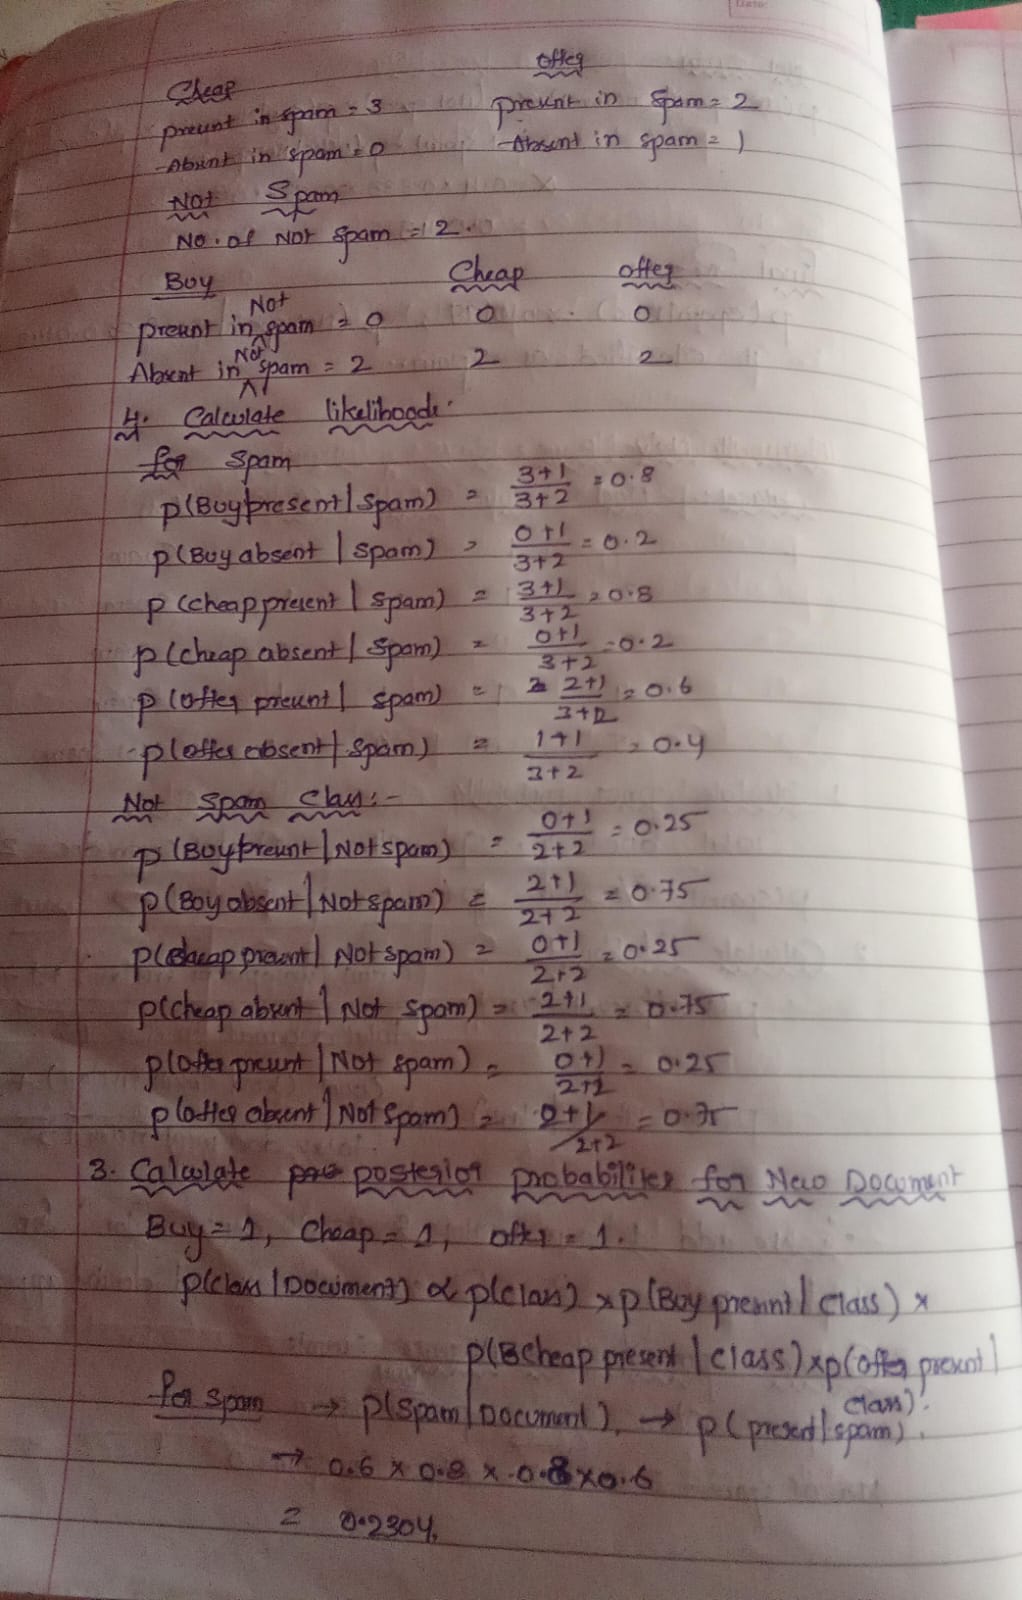 Cheap
offer
present in spam = 3
present in spam = 2
Absent in spam = 0
Absent in spam = 1
Not Spam
No. of Not spam = 2.
Buy Cheap offer
present in Not spam = 0 0 0
Absent in Not spam = 2 2 2
4. Calculate likelihoods.
for spam
p(Buy present | spam) = 3+1/3+2 = 0.8
p(Buy absent | spam) = 0+1/3+2 = 0.2
p(cheap present | spam) = 3+1/3+2 = 0.8
p(cheap absent | spam) = 0+1/3+2 = 0.2
p(offer present | spam) = 2+1/3+2 = 0.6
p(offer absent | spam) = 1+1/3+2 = 0.4
Not spam class:-
p(Buy present | Not spam) = 0+1/2+2 = 0.25
p(Buy absent | Not spam) = 2+1/2+2 = 0.75
p(cheap present | Not spam) = 0+1/2+2 = 0.25
p(cheap absent | Not spam) = 2+1/2+2 = 0.75
p(offer present | Not spam) = 0+1/2+2 = 0.25
p(offer absent | Not spam) = 2+1/2+2 = 0.75
3. Calculate posterior probabilities for New Document
Buy = 1, Cheap = 1, offer = 1.
p(class | Document) ∝ p(class) × p(Buy present | class) ×
p(Cheap present | class) × p(offer present |
class).
for spam → p(spam | Document) → p(present | spam).
→ 0.6 × 0.8 × 0.8 × 0.6
= 0.2304.